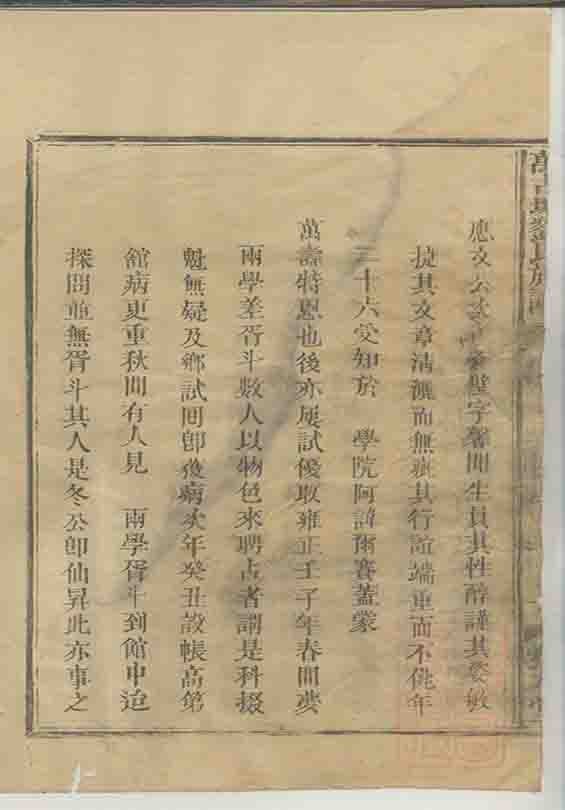 應文公次子 璧字 聞生員其性醇謹其姿敏
捷其文章清 而無疵其行誼端重而不佻年
三十六受知於 學院阿諱爾賽蓋蒙
萬壽特恩也後亦屢試優取雍正壬子年春間夢
兩學差胥斗數人以物色來聘占者謂是科掇
魁無疑及鄉試囘卽復病次年癸丑設帳高第
舘病更重秋間有人見 兩學胥斗到館中迨
探問並無胥斗其人是冬公卽仙昇此亦事之